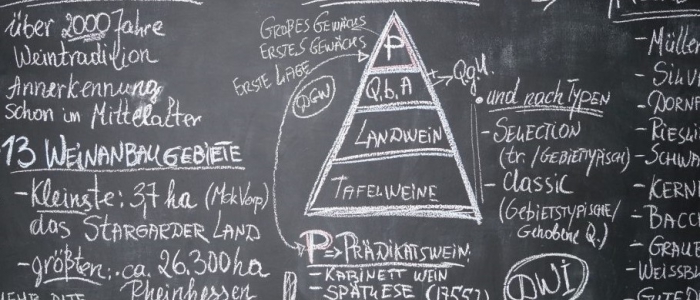 über 2000 Jahre
Weintradition
Annerkennung
schon im Mittelalter
13 WEINANBAUGEBIETE
- Kleinste: 37 ha (MekVorp)
das STARGARDER LAND
- größten: ca. 26.300 ha
Rheinhessen
GROßES GEWÄCHS
ERSTES GEWÄCHS
ERSTE LAGE
DGW
P
Q.b.A
LANDWEIN
TAFELWEINE
Qgu.
P => PRÄDIKATSWEIN:
- KABINETT WEIN
- SPÄTLESE (1755?)
• und nach TYPEN
- SELECTION
(tr./GEBIETTYPISCH)
- CLASSIC
(GEBIETSTYPISCHE/
Gehobene Q.)
DWI
- Mülle
- SILV
- DORN
- RIESL
- SCHWA
- KERN
- BACC
- GRAUE
- WEISSB